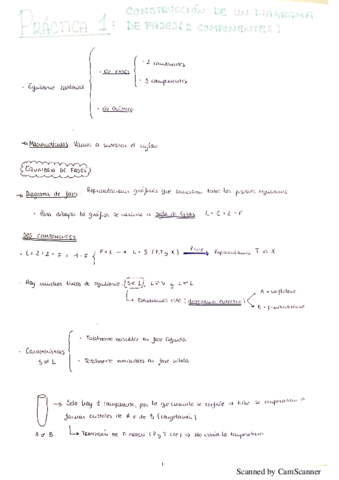 PRÁCTICA 1: CONSTRUCCIÓN DE UN DIAGRAMA
DE FASES (2 COMPONENTES)
· Equilibrio material
- DE FASES
· 2 componentes
· 3 componentes
- DE QUÍMICO
→ Macroscópicos: Vamos a
EQUILIBRIO DE FASES
→ Diagrama de fases: Representaciones gráficas que muestran todos los posibles equilibrios
· Para dibujar la gráfica se recurre a regla de fases L = C + 2 - F
DOS COMPONENTES
· L = 2 + 2 - F = 4 - F
F = 1 → L = 3 (P, T y X) Representamos T vs X
· Hay muchos tipos de equilibrio: S ⇌ L, L ⇌ V y L ⇌ L
→ Estudiamos este (
A = naftaleno
B =
· Características
S ⇌ L
· Totalmente miscibles en fase líquida
· Totalmente inmiscibles en fase sólida
A o B
→ Solo hay 1 componente, por lo que cuando se enfríe el tubo se empezarán a
formar cristales de A o de B (congelación)
→ Transición de 1er orden (P y T cte) → No varía la temperatura
1
Scanned by CamScanner